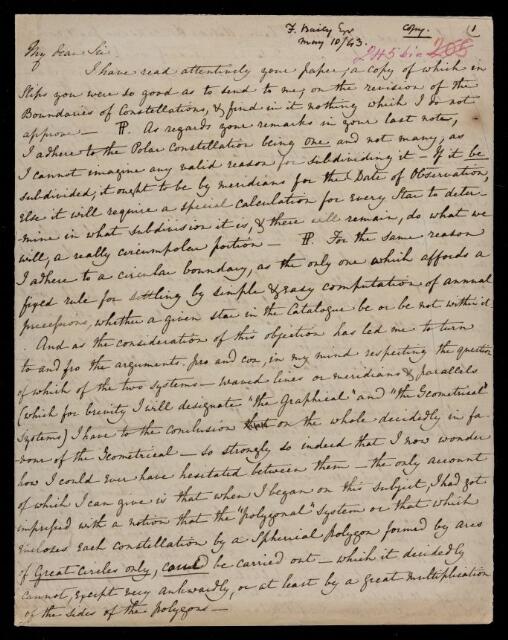 F. Baily Esq
May 10/43
Copy.
(1
245 bis 265
My dear Sir
I have read attentively your paper, a copy of which in
Slips you were so good as to send to me, on the revision of the
Boundaries of Constellations, & find in it nothing which I do not
approve — P. As regards your remarks in your last note,
I adhere to the Polar Constellation being one and not many, as
I cannot imagine any valid reason for subdividing it — If it be
subdivided, it ought to be by meridians for the Date of Observation,
else it will require a special calculation for every Star to deter-
mine in what subdivision it is, & there will remain, do what we
will, a really circumpolar portion — P. For the same reason
I adhere to a circular boundary, as the only one which affords a
fixed rule for settling by simple & easy computation of annual
precessions, whether a given star in the Catalogue be or be not within it
And as the consideration of this objection has led me to turn
to and fro the arguments, pro and con, in my mind respecting the question
of which of the two systems — waved lines or meridians & parallels
(which for brevity I will designate "the Graphical" and "the Geometrical"
Systems) I have to the conclusion that on the whole decidedly in fa-
vour of the Geometrical — so strongly so indeed that I now wonder
how I could ever have hesitated between them — the only account
of which I can give is that when I began on this subject, I had got
impressed with a notion that the "polygonal" system or that which
encloses each constellation by a Spherical Polygon formed by arcs
of Great Circles only, could be carried out — which it decidedly
cannot, except very awkwardly, or at least by a great multiplication
of the sides of the polygons —